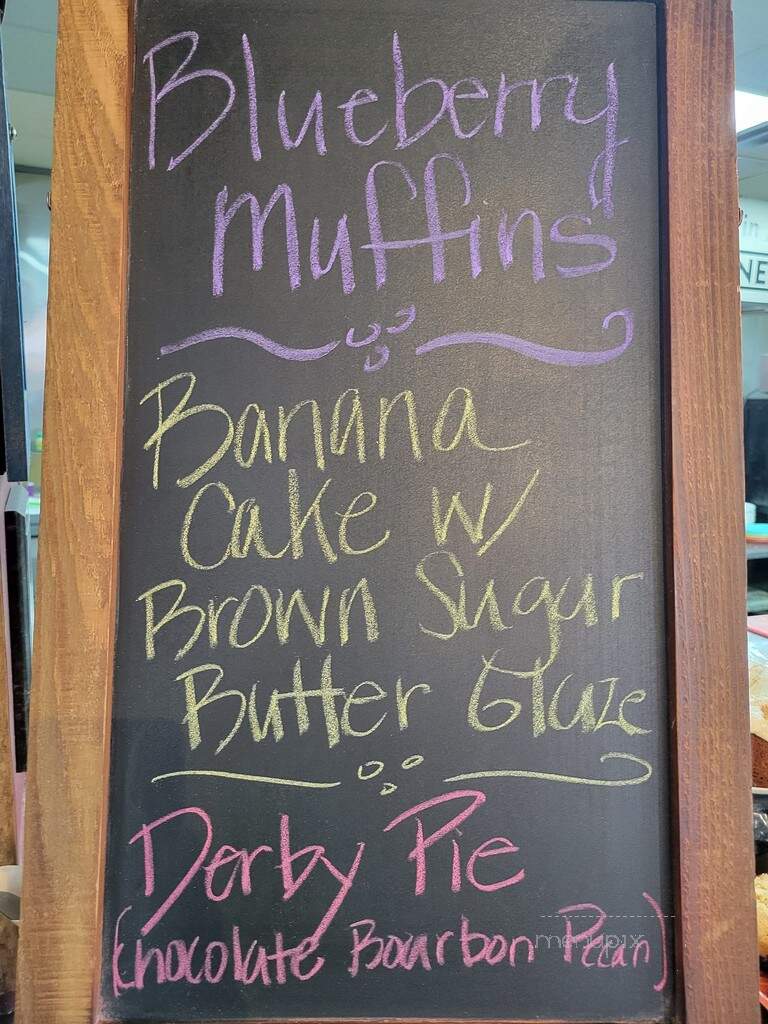 Blueberry
Muffins
Banana
Cake w/
Brown Sugar
Butter Glaze
Derby Pie
(Chocolate Bourbon Pecan)
menupix
in
NE